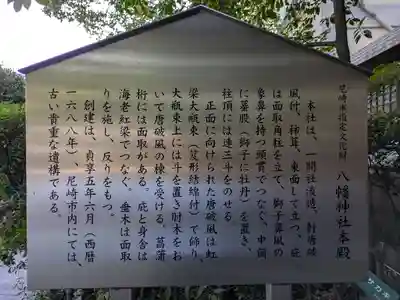 尼崎市指定文化財
八幡神社本殿
本社は、一間社流造、軒唐破
風付、柿葺、東面して立つ。庇
は面取角柱を立て、獅子鼻風の
象鼻を持つ頭貫でつなぐ。中備
に蟇股（獅子に牡丹）を置き、
柱頂には連三斗をのせる。
正面に向けられた唐破風は虹
梁大瓶束（笈形結綿付）で飾り、
大瓶束上には斗を置き肘木をお
いて唐破風の棟を受ける。菖蒲
桁には面取がある。庇と身舎は
海老虹梁でつなぐ。垂木は面取
りを施し、反りをもつ。
創建は、貞享五年六月（西暦
一六八八年）、尼崎市内にては、
古い貴重な遺構である。
サカキ